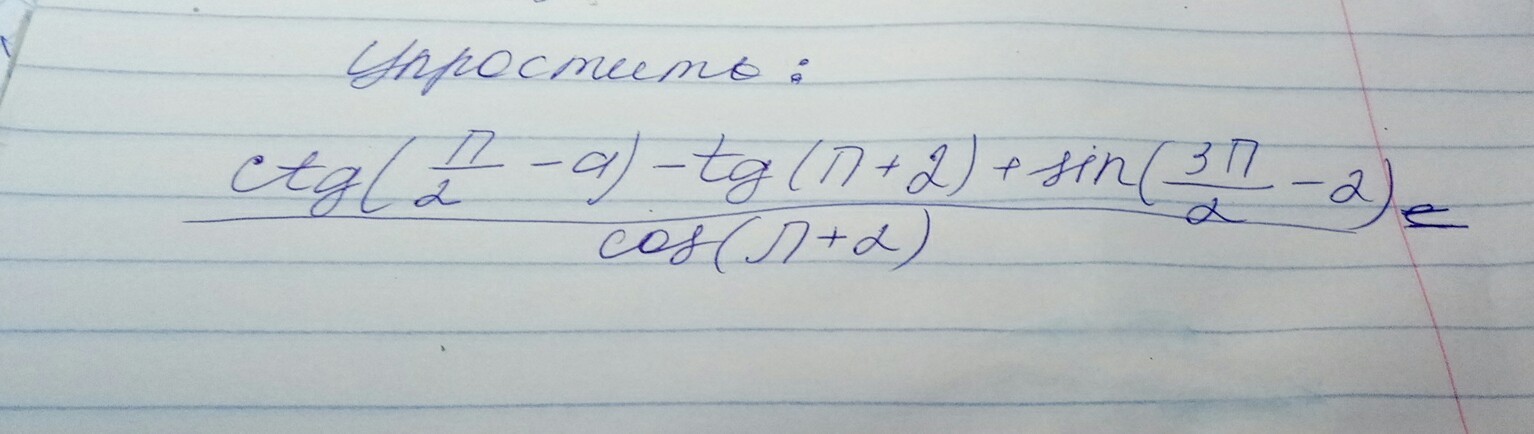 Упростить:
ctg(π/2 - a) - tg(π + 2) + sin(3π/2 - 2) =
cos(π + 2)